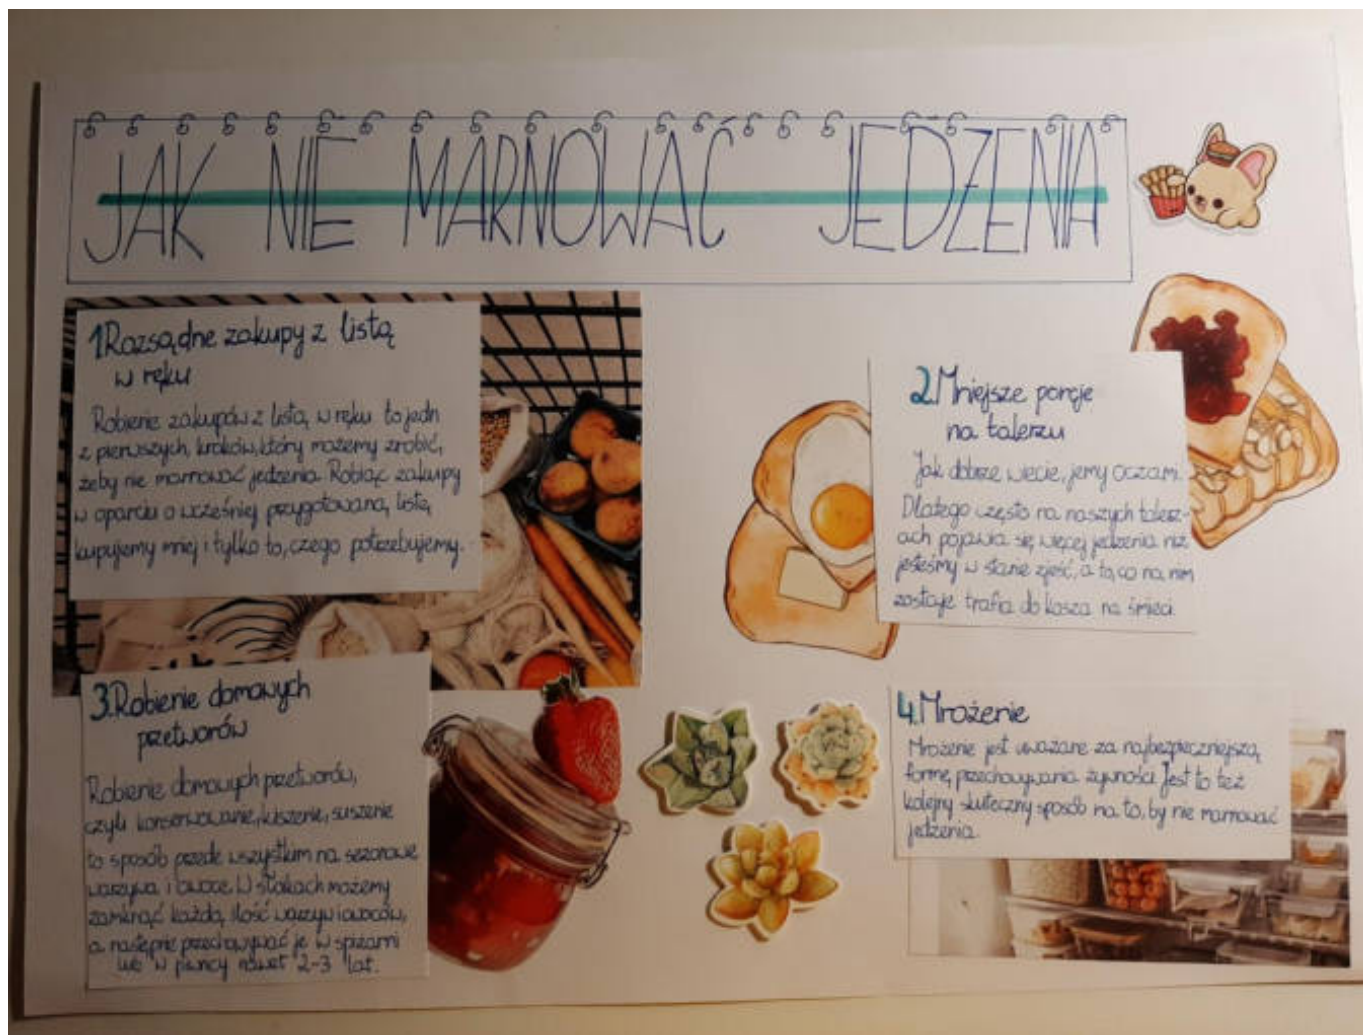 JAK NIE MARNOWAĆ JEDZENIA
1 Rozsądne zakupy z listą
w ręku
Robienie zakupów z listą w ręku to jedn
z pierwszych kroków, który możemy zrobić,
żeby nie marnować jedzenia. Robiąc zakupy
w oparciu o wcześniej przygotowaną listę
kupujemy mniej i tylko to, czego potrzebujemy.
2. Mniejsze porcje
na talerzu
Jak dobrze wiecie, jemy oczami.
Dlatego często na naszych talerz-
ach pojawia się więcej jedzenia niż
jesteśmy w stanie zjeść, a to, co na nim
zostaje trafia do kosza na śmieci.
3. Robienie domowych
przetworów
Robienie domowych przetworów,
czyli konserwowanie, kiszenie, suszenie
to sposób przede wszystkim na sezonowe
warzywa i owoce. W słoikach możemy
zamknąć każdą ilość warzyw i owoców,
a następnie przechowywać je w spiżarni
lub w piwnicy nawet 2-3 lat.
4. Mrożenie
Mrożenie jest uważane za najbezpieczniejszą
formę przechowywania żywności. Jest to też
kolejny skuteczny sposób na to, by nie marnować
jedzenia.